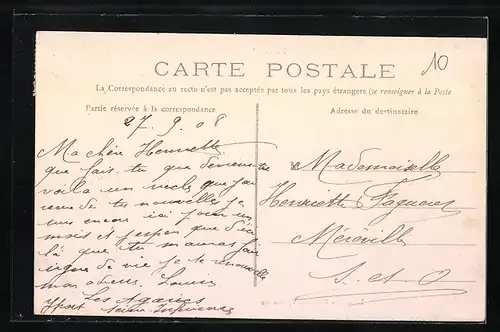 10
CARTE POSTALE
La Correspondance au recto n'est pas acceptée par tous les pays étrangers (se renseigner à la Poste
Partie réservée à la correspondance
Adresse du destinataire
27.9.08
Ma chère Henriette
que fais tu que deviens-tu
voilà un siècle que j'ai
de tes nouvelles je
suis encore ici pour un
mois et j'espère que d'ici
là que tu me
signe de vie je te renouvelle
mon adresse. Louise
Les
Yport Seine Inférieure
Mademoiselle
Henriette
Méréville
S-et-O